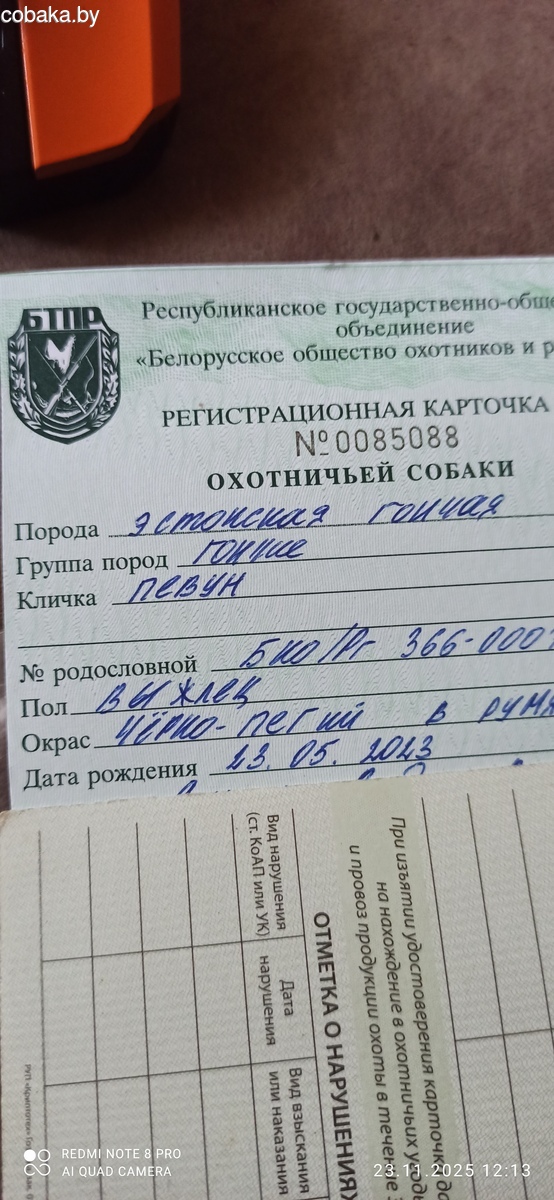 cobaka.by
БТПР
Республиканское государственно-обще
объединение
«Белорусское общество охотников и р
РЕГИСТРАЦИОННАЯ КАРТОЧКА
№0085088
ОХОТНИЧЬЕЙ СОБАКИ
Порода эстонская гончая
Группа пород гончие
Кличка Певун
№ родословной БКО/Рг 366-000
Пол выжлец
Окрас чёрно-пегий в румя
Дата рождения 23.05.2023
При изъятии удостоверения карточка до
на нахождение в охотничьих угод
и провоз продукции охоты в течение
ОТМЕТКА О НАРУШЕНИЯХ
Вид нарушения
(ст. КоАП или УК)
Дата
нарушения
Вид взыскания
или наказания
REDMI NOTE 8 PRO
AI QUAD CAMERA
23.11.2025 12:13